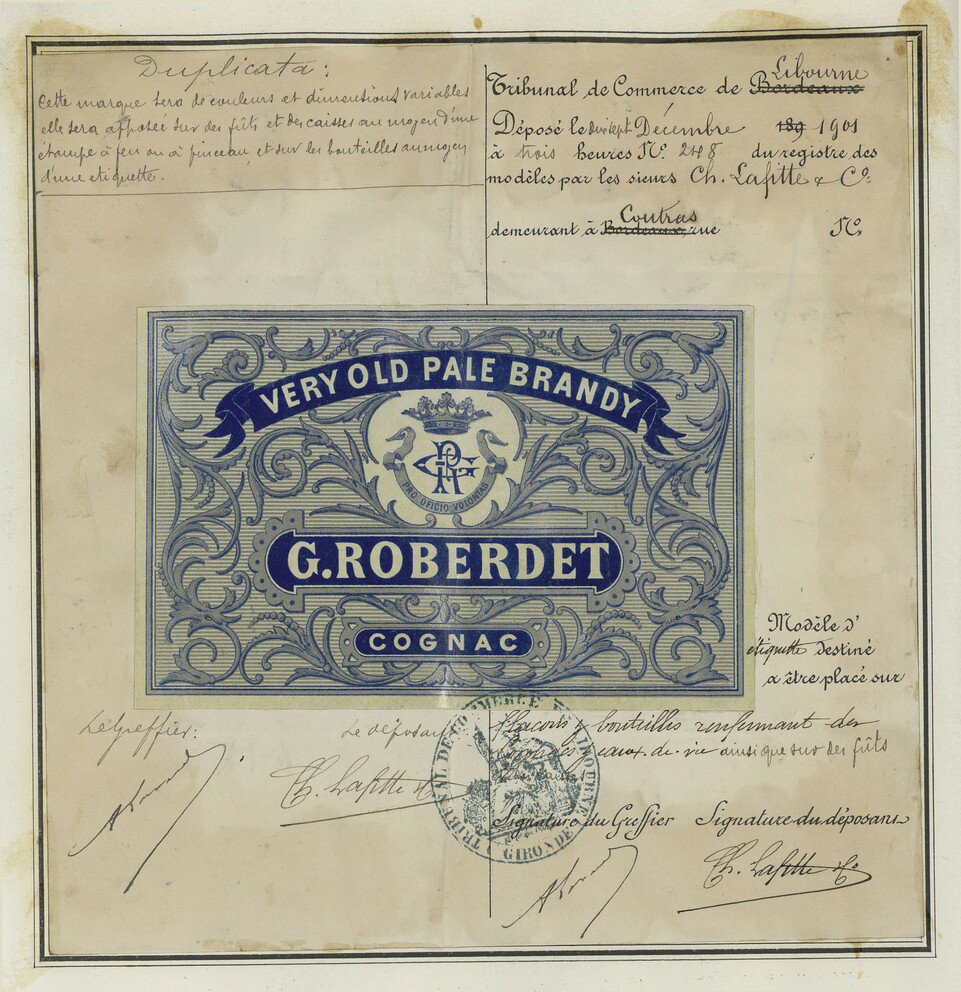 Duplicata:
Cette marque sera de couleurs et dimensions variables
elle sera apposée sur des fûts et des caisses au moyen d'une
étampe à feu ou à pinceau, et sur les bouteilles au moyen
d'une etiquette.
Libourne
Tribunal de Commerce de Bordeaux
Déposé le dix sept Décembre 189 1901
à trois heures No. 248 du régistre des
modèles par les sieurs Ch. Lafitte & Co.
Coutras
demeurant à Bordeaux, rue No.
VERY OLD PALE BRANDY
PRO OFICIO VOLONTAS
G. ROBERDET
COGNAC
Modèle d'
étiquette destiné
a être placé sur
flacons, bouteilles renfermant des
eaux-de-vie ainsi que sur des fûts
Le Greffier:
Le déposant
Ch. Lafitte & Co
TRIBUNAL DE COMMERCE LIBOURNE
GIRONDE
Signature du Greffier Signature du déposant
Ch. Lafitte & Co